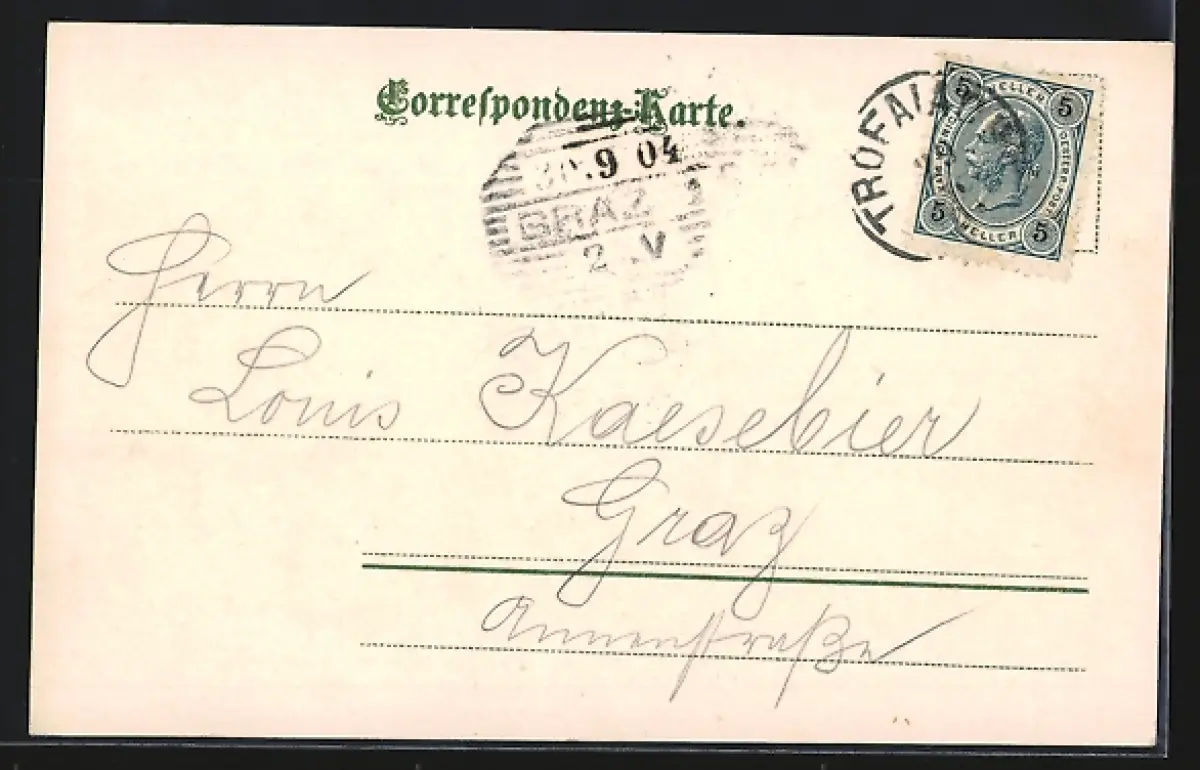 Correspondenz-Karte.
30.9 04
GRAZ 1
2 .V
TROFAIA
5 HELLER 5
5 HELLER 5
Herrn
Louis Kaesebier
Graz
Annenstraße